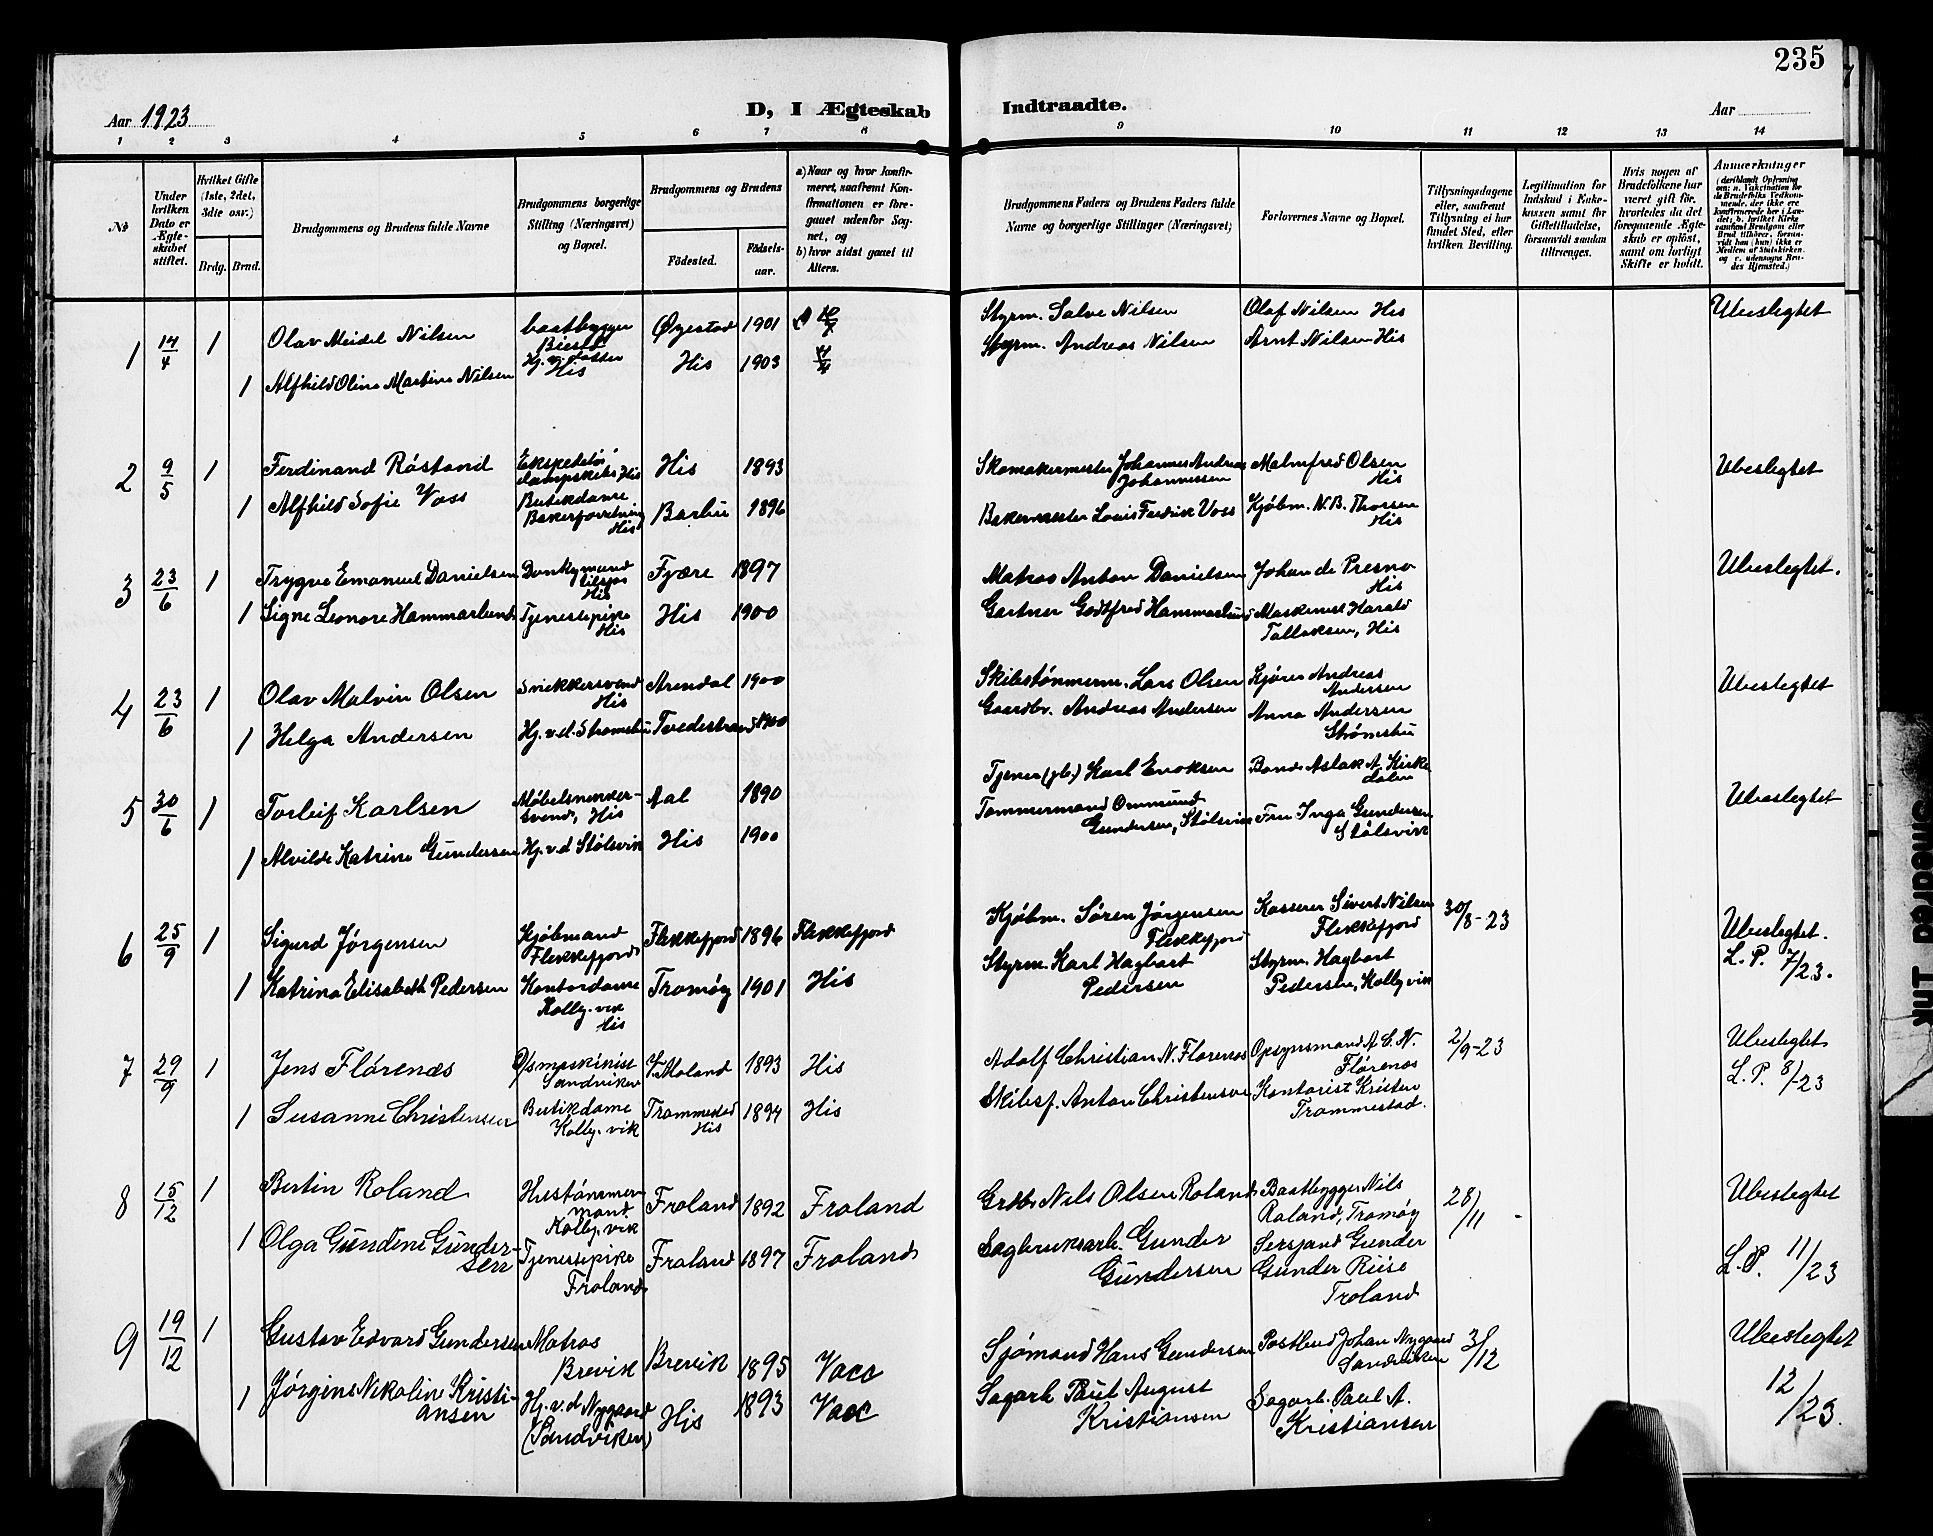 235
Aar 1923
D, I Ægteskab
Indtraadte.
Aar
1 2 3 4 5 6 7 8 9 10 11 12 13 14
No
Under hvilken Dato er Ægteskabet stiftet.
Hvilket Gifte (1ste, 2det, 3die osv.)
Brdg. Brud.
Brudgommens og Brudens fulde Navne
Brudgommens borgerlige Stilling (Næringsvei) og Bopæl.
Brudgommens og Brudens
Födested.
Födsels-aar.
a) Naar og hvor konfirmeret, saafremt Konfirmationen er foregaaet udenfor Sognet, og
b) hvor sidst gaaet til Alters.
Brudgommens Faders og Brudens Faders fulde Navne og borgerlige Stillinger (Næringsvei)
Forlovernes Navne og Bopæl.
Tillysningsdagene eller, saafremt Tillysning ei har fundet Sted, efter hvilken Bevilling.
Legitimation for Indskud i Enkekassen samt for Giftetilladelse, forsaavidt saadan tiltrænges.
Hvis nogen af Brudefolkene har været gift før, hvorledes da det foregaaende Ægteskab er oplöst, samt om lovligt Skifte er holdt.
Anmerkninger
1 14/4 1 Olav Meidel Nilsen baatbygger Øyestad 1901 Styrm. Salve Nilsen Olaf Nilsen His Ubeslegtet
1 Alfhild Oline Martine Nilsen Hj. v. datter His His 1903 Styrm. Andreas Nilsen Arnt Nilsen His
2 9/5 1 Ferdinand Róstand Ekspeditør dampskibs His His 1893 Skomakermester Johannes Andreas Johannessen Malmfred Olsen His Ubeslegtet
1 Alfhild Sofie Voss Butikdame Bakerforretning His Barbu 1896 Bakermester Louis Fredrik Voss Kjøbm. N. B. Thorsen His
3 23/6 1 Trygve Emanuel Danielsen Donkymand tilsjøs His Fjære 1897 Matros Anton Danielsen Johan de Presno His Ubeslegtet.
1 Signe Leonore Hammarlund Tjenestepike His His 1900 Gartner Godtfred Hammarlund Maskinist Harald Tallaksen, His
4 23/6 1 Olav Malvin Olsen Snekkersvend His Arendal 1900 Skibstømmerm. Lars Olsen Kjören Andreas Andersen Ubeslegtet
1 Helga Andersen Hj. v. d. Strømsbu Tvedestrand 1900 Gaardbr. Andreas Andersen Anna Andersen Strømsbu
5 30/6 1 Torleif Karlsen Møbelsnekkersvend, His Aal 1890 Tjener (gb.) Karl Enoksen Bonde Aslak A. Kirkedalen Ubeslegtet
1 Alvilde Katrine Gundersen Hj. v. d Stølsvik His 1900 Tømmermand Ommund Gundersen, Stølsvik Fru Inga Gundersen Stølsvik
6 25/9 1 Sigurd Jørgensen Kjøbmand Flekkefjord Flekkefjord 1896 Flekkefjord Kjøbm. Søren Jørgensen Flekkefjord Kasserer Sivert Nilsen Flekkefjord 30/8-23 Ubeslegtet.
1 Katrine Elisabeth Pedersen Kontordame Kolbj.vik His Tromøy 1901 His Styrm. Karl Hagbart Pedersen Styrm. Hagbart Pedersen, Kolbj.vik L. P. 7/23.
7 29/9 1 Jens Flórenæs D/smaskinist Sandviken V. Moland 1893 His Adolf Christian N. Florenæs Opsynsmand A. C. N. Flórenæs 2/9-23 Ubeslegtet
1 Susanne Christensen Butikdame Kolbj.vik Trommestad His 1894 His Skibsf. Anton Christensen Kontorist Kristen Trommestad. L. P. 8/-23
8 15/12 1 Bertin Roland Hustømmermand Kolbj.vik Froland 1892 Froland Grdbr. Nils Olsen Roland Baatbygger Nils Roland, Tromøy 28/11 - Ubeslegtet
1 Olga Gundine Gundersen Tjenestepike Froland Froland 1897 Froland Sagbruksarb. Gunder Gundersen Sersjand Gunder Gunder Riise Froland L. P. 11/23
9 19/12 1 Gustav Edvard Gundersen Matros Brevik Brevik 1895 Vacc Sjømand Hans Gundersen Postbud Johan Nygaard Sandviken 3/12 Ubeslegtet
1 Jørgine Nikoline Kristiansen Hj. v. d Nygaard (Sandviken) His 1893 Vacc Sagarb. Paul August Kristiansen Sagarb. Paul A. Kristiansen 12/23.